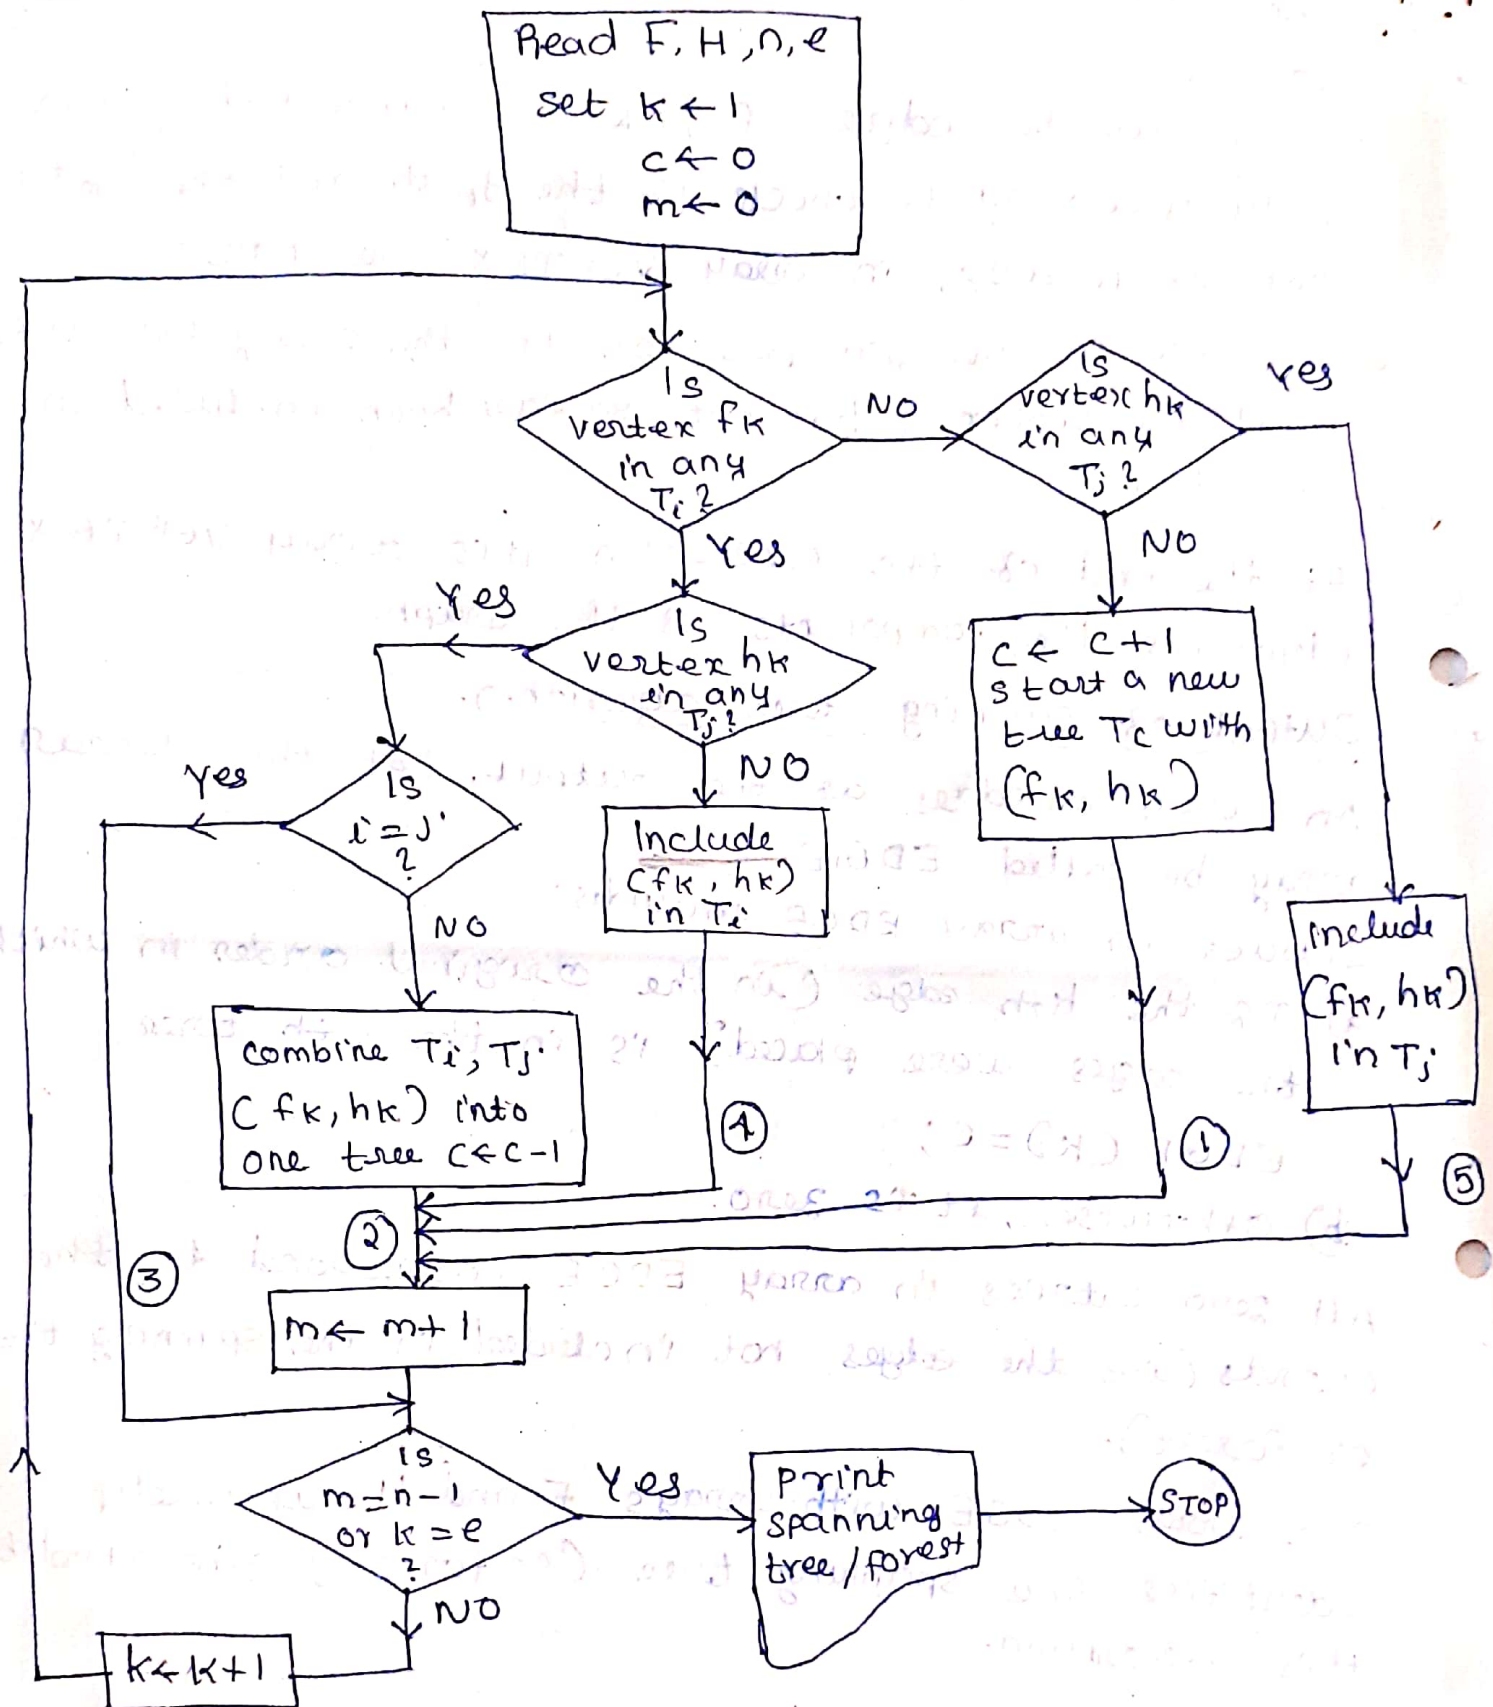 Read F, H, n, e
set k ← 1
c ← 0
m ← 0
Is
vertex fk
in any
Ti ?
NO
Is
vertex hk
in any
Tj ?
Yes
NO
Yes
Is
vertex hk
in any
Tj ?
Yes
NO
c ← c + 1
start a new
tree Tc with
(fk, hk)
Is
i = j
?
Yes
NO
Include
(fk, hk)
in Ti
include
(fk, hk)
in Tj
combine Ti, Tj
(fk, hk) into
one tree c ← c - 1
4
1
5
2
3
m ← m + 1
Is
m = n - 1
or k = e
?
Yes
print
spanning
tree / forest
STOP
NO
k ← k + 1